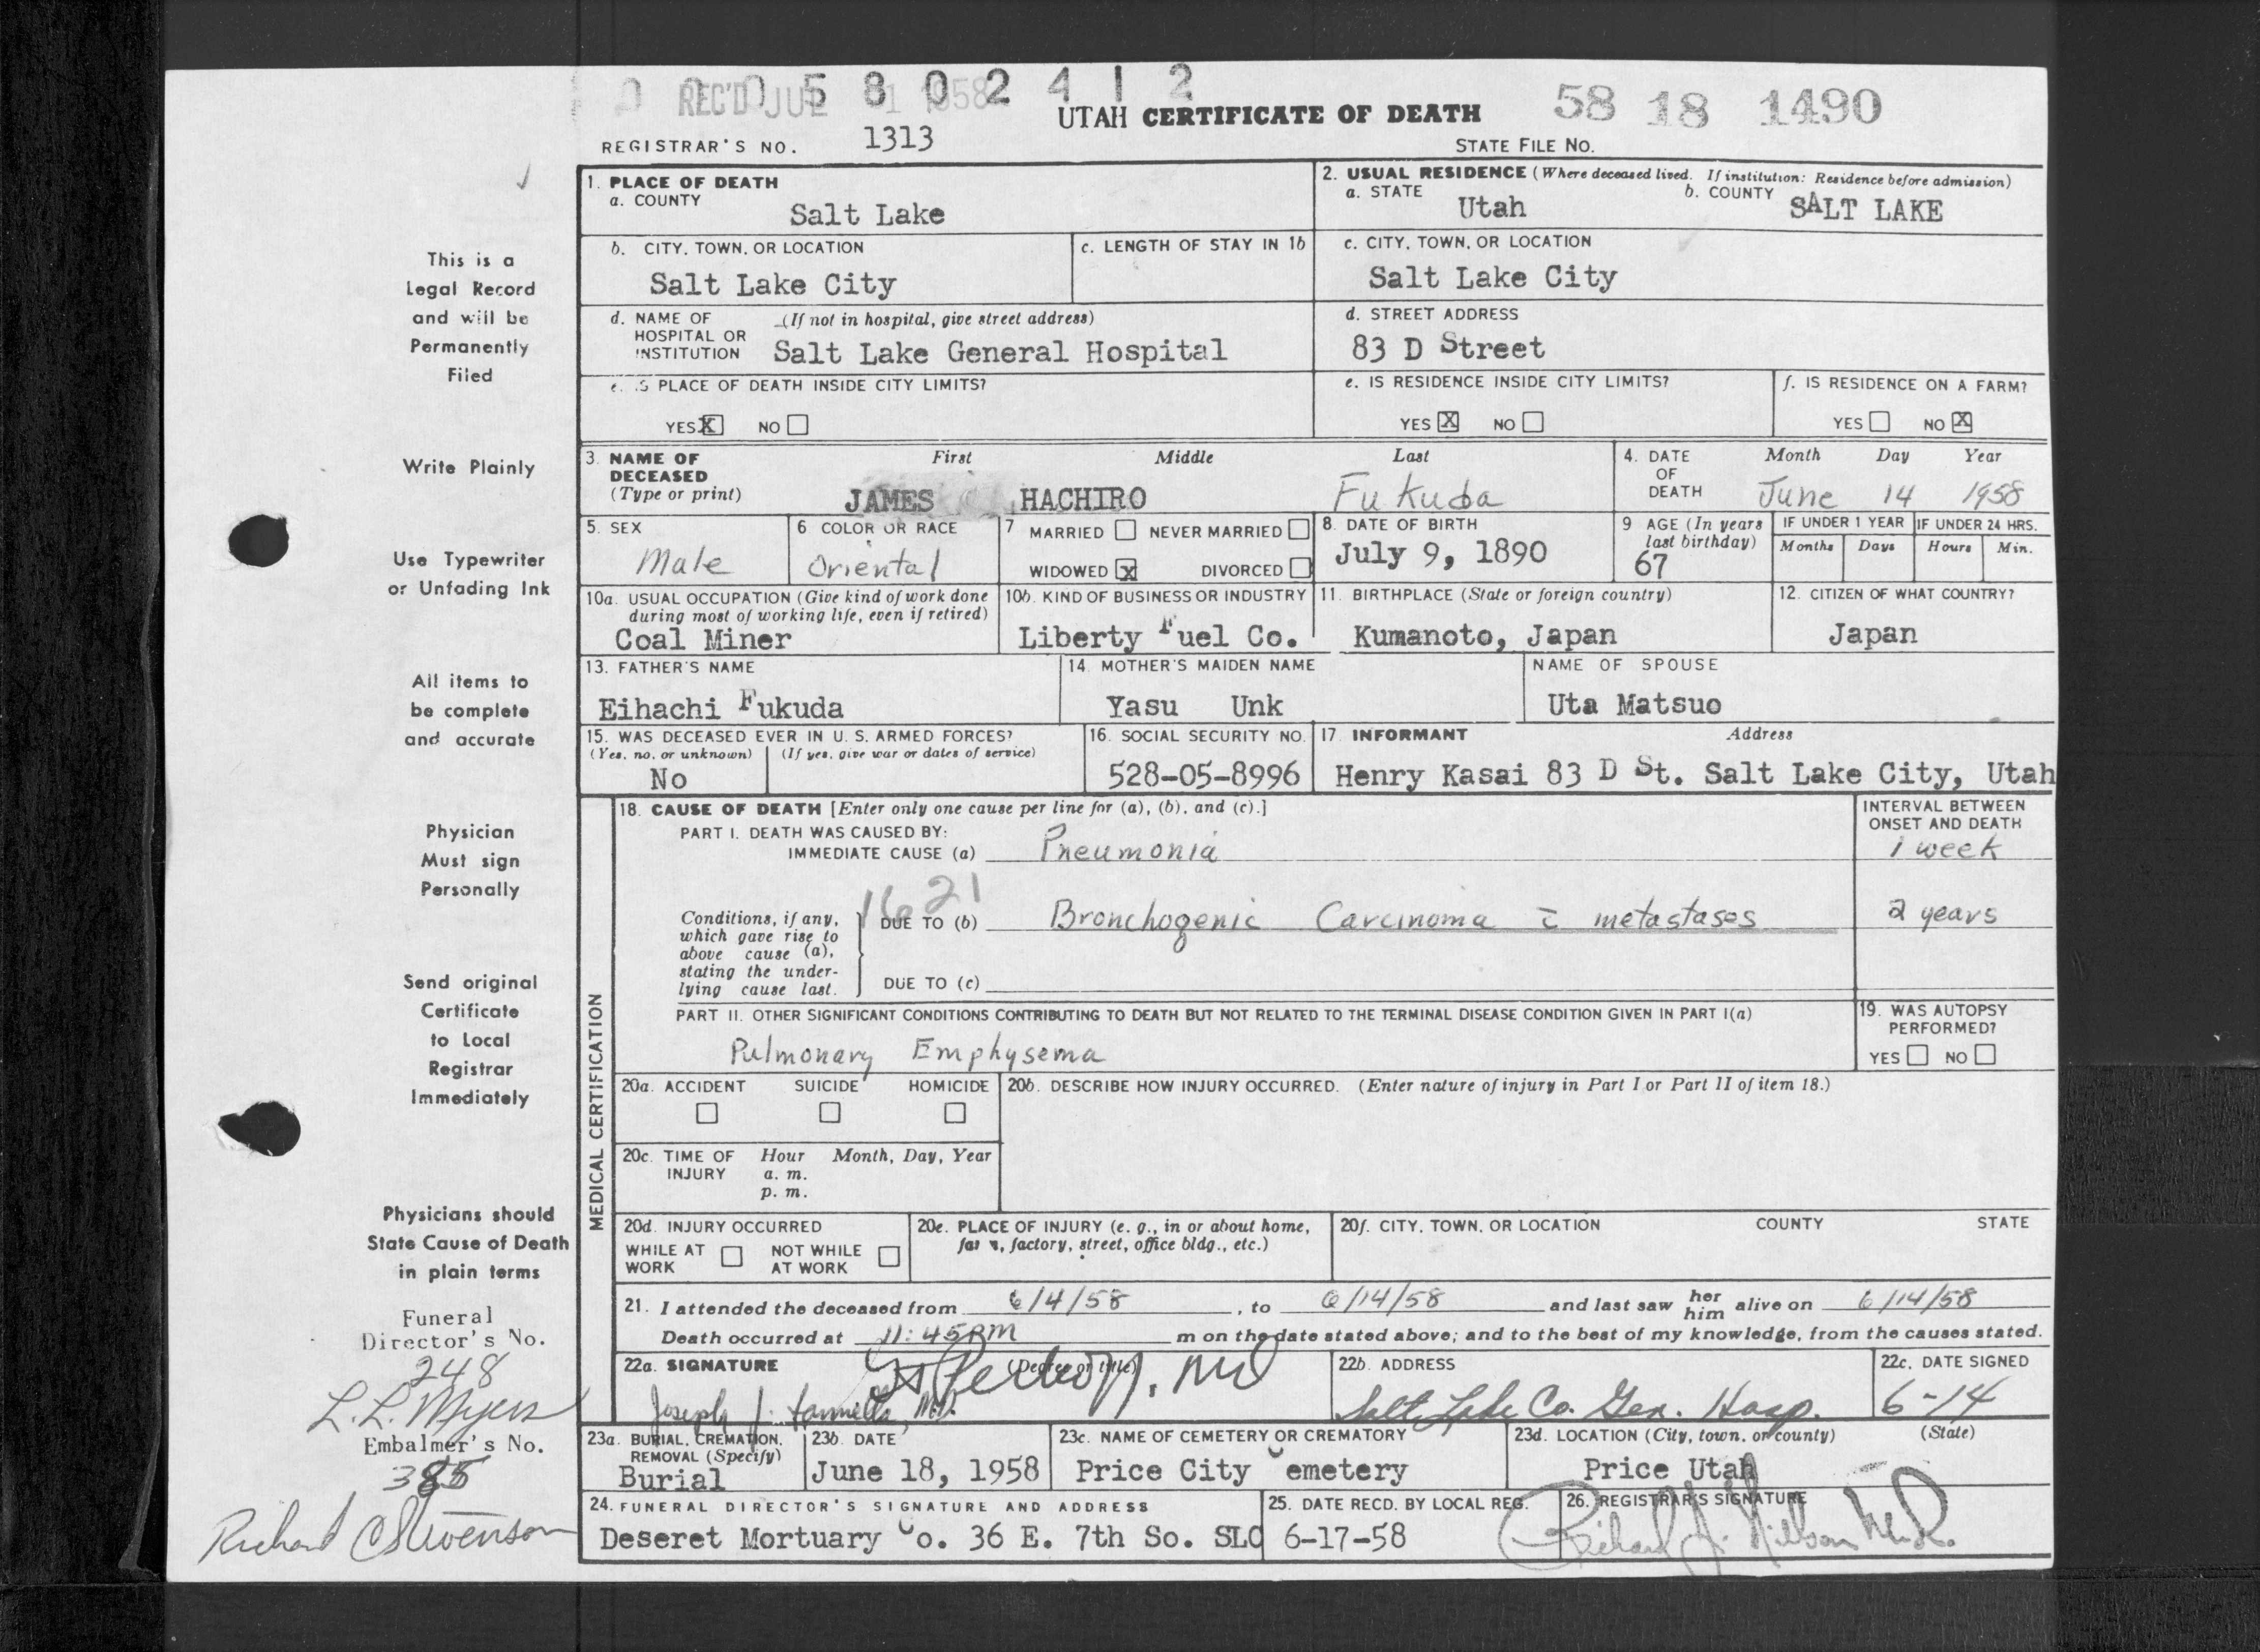 0 0 0 5 8 0 2 4 1 2
REC'D JUL 1 1958
UTAH CERTIFICATE OF DEATH
58 18 1490
REGISTRAR'S NO. 1313
STATE FILE NO.
1. PLACE OF DEATH
a. COUNTY
Salt Lake
2. USUAL RESIDENCE (Where deceased lived. If institution: Residence before admission)
a. STATE Utah b. COUNTY SALT LAKE
b. CITY, TOWN, OR LOCATION
Salt Lake City
c. LENGTH OF STAY IN 1b
c. CITY, TOWN, OR LOCATION
Salt Lake City
d. NAME OF HOSPITAL OR INSTITUTION (If not in hospital, give street address)
Salt Lake General Hospital
d. STREET ADDRESS
83 D Street
e. IS PLACE OF DEATH INSIDE CITY LIMITS?
YES X NO
e. IS RESIDENCE INSIDE CITY LIMITS?
YES X NO
f. IS RESIDENCE ON A FARM?
YES NO X
3. NAME OF DECEASED (Type or print)
First Middle Last
JAMES HACHIRO Fukuda
4. DATE OF DEATH Month Day Year
June 14 1958
5. SEX
Male
6 COLOR OR RACE
Oriental
7 MARRIED NEVER MARRIED
WIDOWED X DIVORCED
8. DATE OF BIRTH
July 9, 1890
9 AGE (In years last birthday)
67
IF UNDER 1 YEAR
Months Days
IF UNDER 24 HRS.
Hours Min.
10a. USUAL OCCUPATION (Give kind of work done during most of working life, even if retired)
Coal Miner
10b. KIND OF BUSINESS OR INDUSTRY
Liberty Fuel Co.
11. BIRTHPLACE (State or foreign country)
Kumanoto, Japan
12. CITIZEN OF WHAT COUNTRY?
Japan
13. FATHER'S NAME
Eihachi Fukuda
14. MOTHER'S MAIDEN NAME
Yasu Unk
NAME OF SPOUSE
Uta Matsuo
15. WAS DECEASED EVER IN U. S. ARMED FORCES?
(Yes, no, or unknown) (If yes, give war or dates of service)
No
16. SOCIAL SECURITY NO.
528-05-8996
17. INFORMANT Address
Henry Kasai 83 D St. Salt Lake City, Utah
MEDICAL CERTIFICATION
18. CAUSE OF DEATH [Enter only one cause per line for (a), (b), and (c).]
INTERVAL BETWEEN ONSET AND DEATH
PART I. DEATH WAS CAUSED BY:
IMMEDIATE CAUSE (a) Pneumonia 1 week
1621
Conditions, if any, which gave rise to above cause (a), stating the underlying cause last.
DUE TO (b) Bronchogenic Carcinoma c̄ metastases 2 years
DUE TO (c)
PART II. OTHER SIGNIFICANT CONDITIONS CONTRIBUTING TO DEATH BUT NOT RELATED TO THE TERMINAL DISEASE CONDITION GIVEN IN PART I(a)
Pulmonary Emphysema
19. WAS AUTOPSY PERFORMED?
YES NO
20a. ACCIDENT SUICIDE HOMICIDE
20b. DESCRIBE HOW INJURY OCCURRED. (Enter nature of injury in Part I or Part II of item 18.)
20c. TIME OF INJURY Hour Month, Day, Year
a. m.
p. m.
20d. INJURY OCCURRED
WHILE AT WORK NOT WHILE AT WORK
20e. PLACE OF INJURY (e. g., in or about home, farm, factory, street, office bldg., etc.)
20f. CITY, TOWN, OR LOCATION COUNTY STATE
21. I attended the deceased from 6/4/58, to 6/14/58 and last saw her him alive on 6/14/58
Death occurred at 11:45 PM m on the date stated above; and to the best of my knowledge, from the causes stated.
22a. SIGNATURE (Degree or title)
Joseph J. M.D.
22b. ADDRESS
Salt Lake Co. Gen. Hosp.
22c. DATE SIGNED
6-14
23a. BURIAL, CREMATION, REMOVAL (Specify)
Burial
23b. DATE
June 18, 1958
23c. NAME OF CEMETERY OR CREMATORY
Price City Cemetery
23d. LOCATION (City, town, or county) (State)
Price Utah
24. FUNERAL DIRECTOR'S SIGNATURE AND ADDRESS
Deseret Mortuary Co. 36 E. 7th So. SLC
25. DATE RECD. BY LOCAL REG.
6-17-58
26. REGISTRAR'S SIGNATURE
This is a
Legal Record
and will be
Permanently
Filed
Write Plainly
Use Typewriter
or Unfading Ink
All items to
be complete
and accurate
Physician
Must sign
Personally
Send original
Certificate
to Local
Registrar
Immediately
Physicians should
State Cause of Death
in plain terms
Funeral
Director's No.
248
L. L. Myers
Embalmer's No.
385
Richard C Stevenson